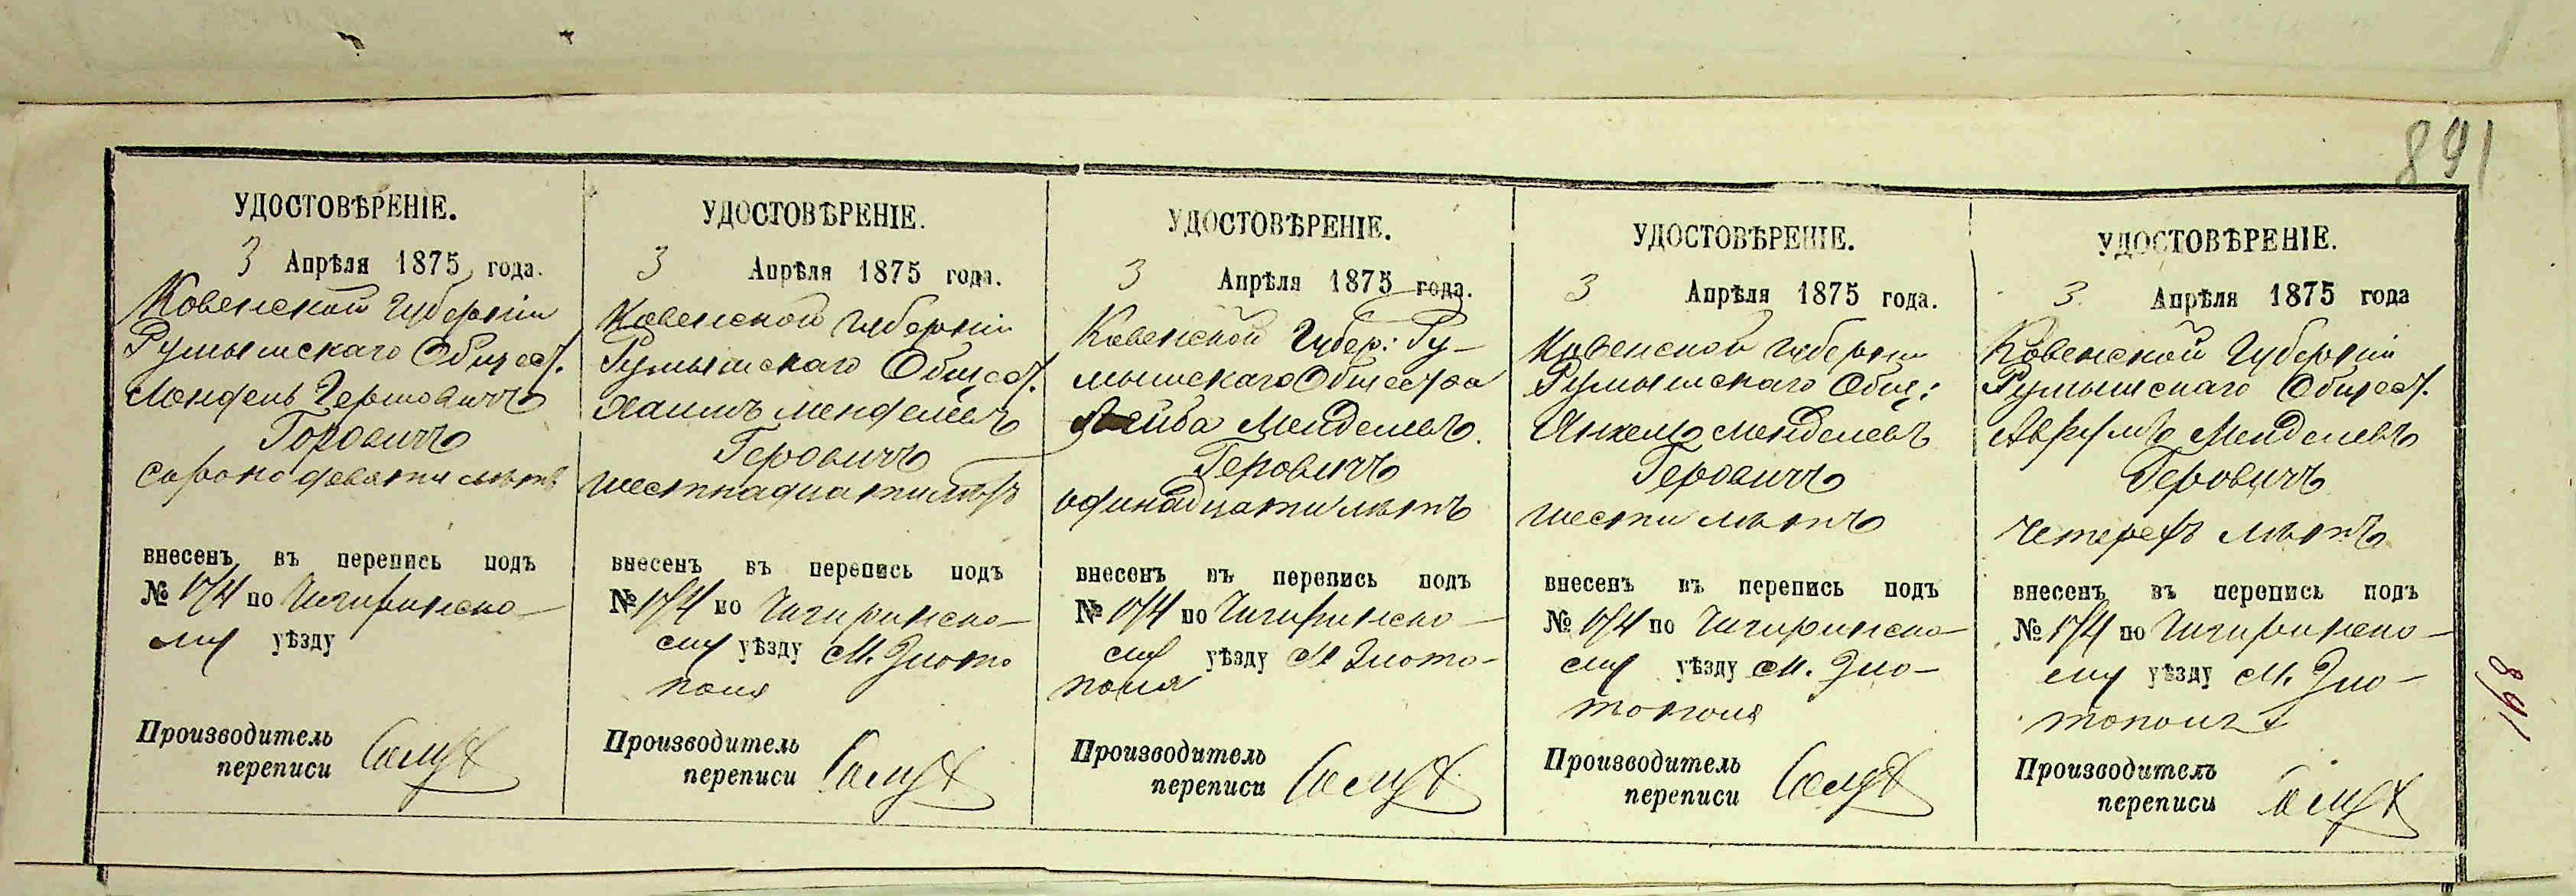 891
УДОСТОВѢРЕНІЕ.
3 Апрѣля 1875 года.
Ковенской Губерніи
Румышскаго Общест.
Мендель Гершовичъ
Горовичъ
сорока девяти лѣтъ
внесенъ въ перепись подъ
№ 174 по Чигиринско-
му уѣзду
Производитель
переписи
УДОСТОВѢРЕНІЕ.
3 Апрѣля 1875 года.
Ковенской Губерніи
Румышскаго Общест.
Хаимъ Менделевъ
Геровичъ
шестнадцати лѣтъ
внесенъ въ перепись подъ
№ 174 по Чигиринско-
му уѣзду М. Злото
поля
Производитель
переписи
УДОСТОВѢРЕНІЕ.
3 Апрѣля 1875 года.
Ковенской Губер: Ру-
мышскаго Общества
Менделевъ
Геровичъ
одинадцати лѣтъ
внесенъ въ перепись подъ
№ 174 по Чигиринско-
му уѣзду М Злото-
поля
Производитель
переписи
УДОСТОВѢРЕНІЕ.
3 Апрѣля 1875 года.
Ковенской Губерніи
Румышскаго Общ:
Янкель Менделевъ
Геровичъ
шести лѣтъ
внесенъ въ перепись подъ
№ 174 по Чигиринско-
му уѣзду М. Зло-
тополя
Производитель
переписи
УДОСТОВѢРЕНІЕ.
3 Апрѣля 1875 года
Ковенской Губерніи
Румышскаго Общест.
Аврумъ Менделевъ
Геровичъ
четерехъ лѣтъ
внесенъ въ перепись подъ
№ 174 по Чигиринско-
му уѣзду М. Зло-
тополя
Производитель
переписи
891